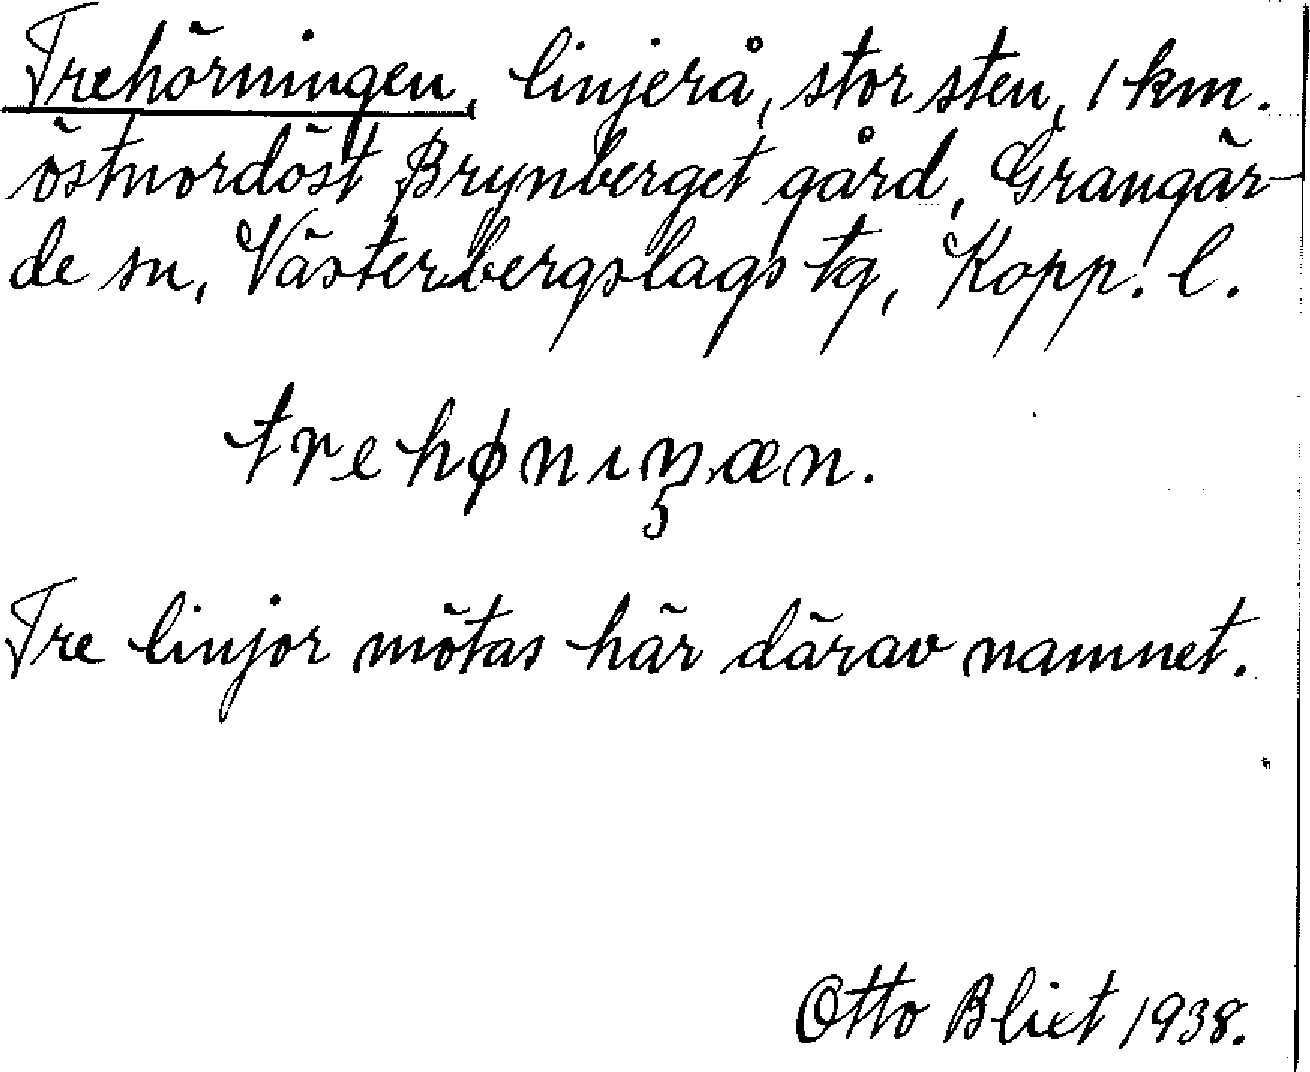 Trehörningen, linjerå, stor sten, 1 km.
östnordöst Brynberget gård, Grangär-
de sn, Västerbergslags tg, Kopp. l.
trehøniŋæn.
Tre linjor mötas här därav namnet.
Otto Blixt 1938.